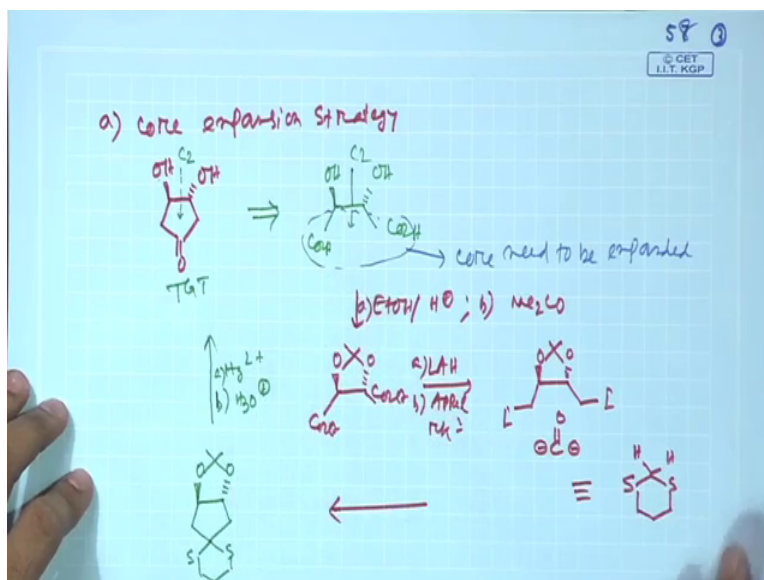 58 ③
© CET
I.I.T. KGP
a) core expansion strategy
C2
OH
OH
O
TGT
⇒
C2
OH
OH
CO2H
CO2H
core need to be expanded
a) EtOH/ H⊕ ; b) Me2CO
O O
CO2Et
CO2Et
a) LAH
b) Appel
rxn
O O
I I
O
⊖C⊖
≡
H H
S S
a) Hg2+
b) H3O⊕
O O
S S